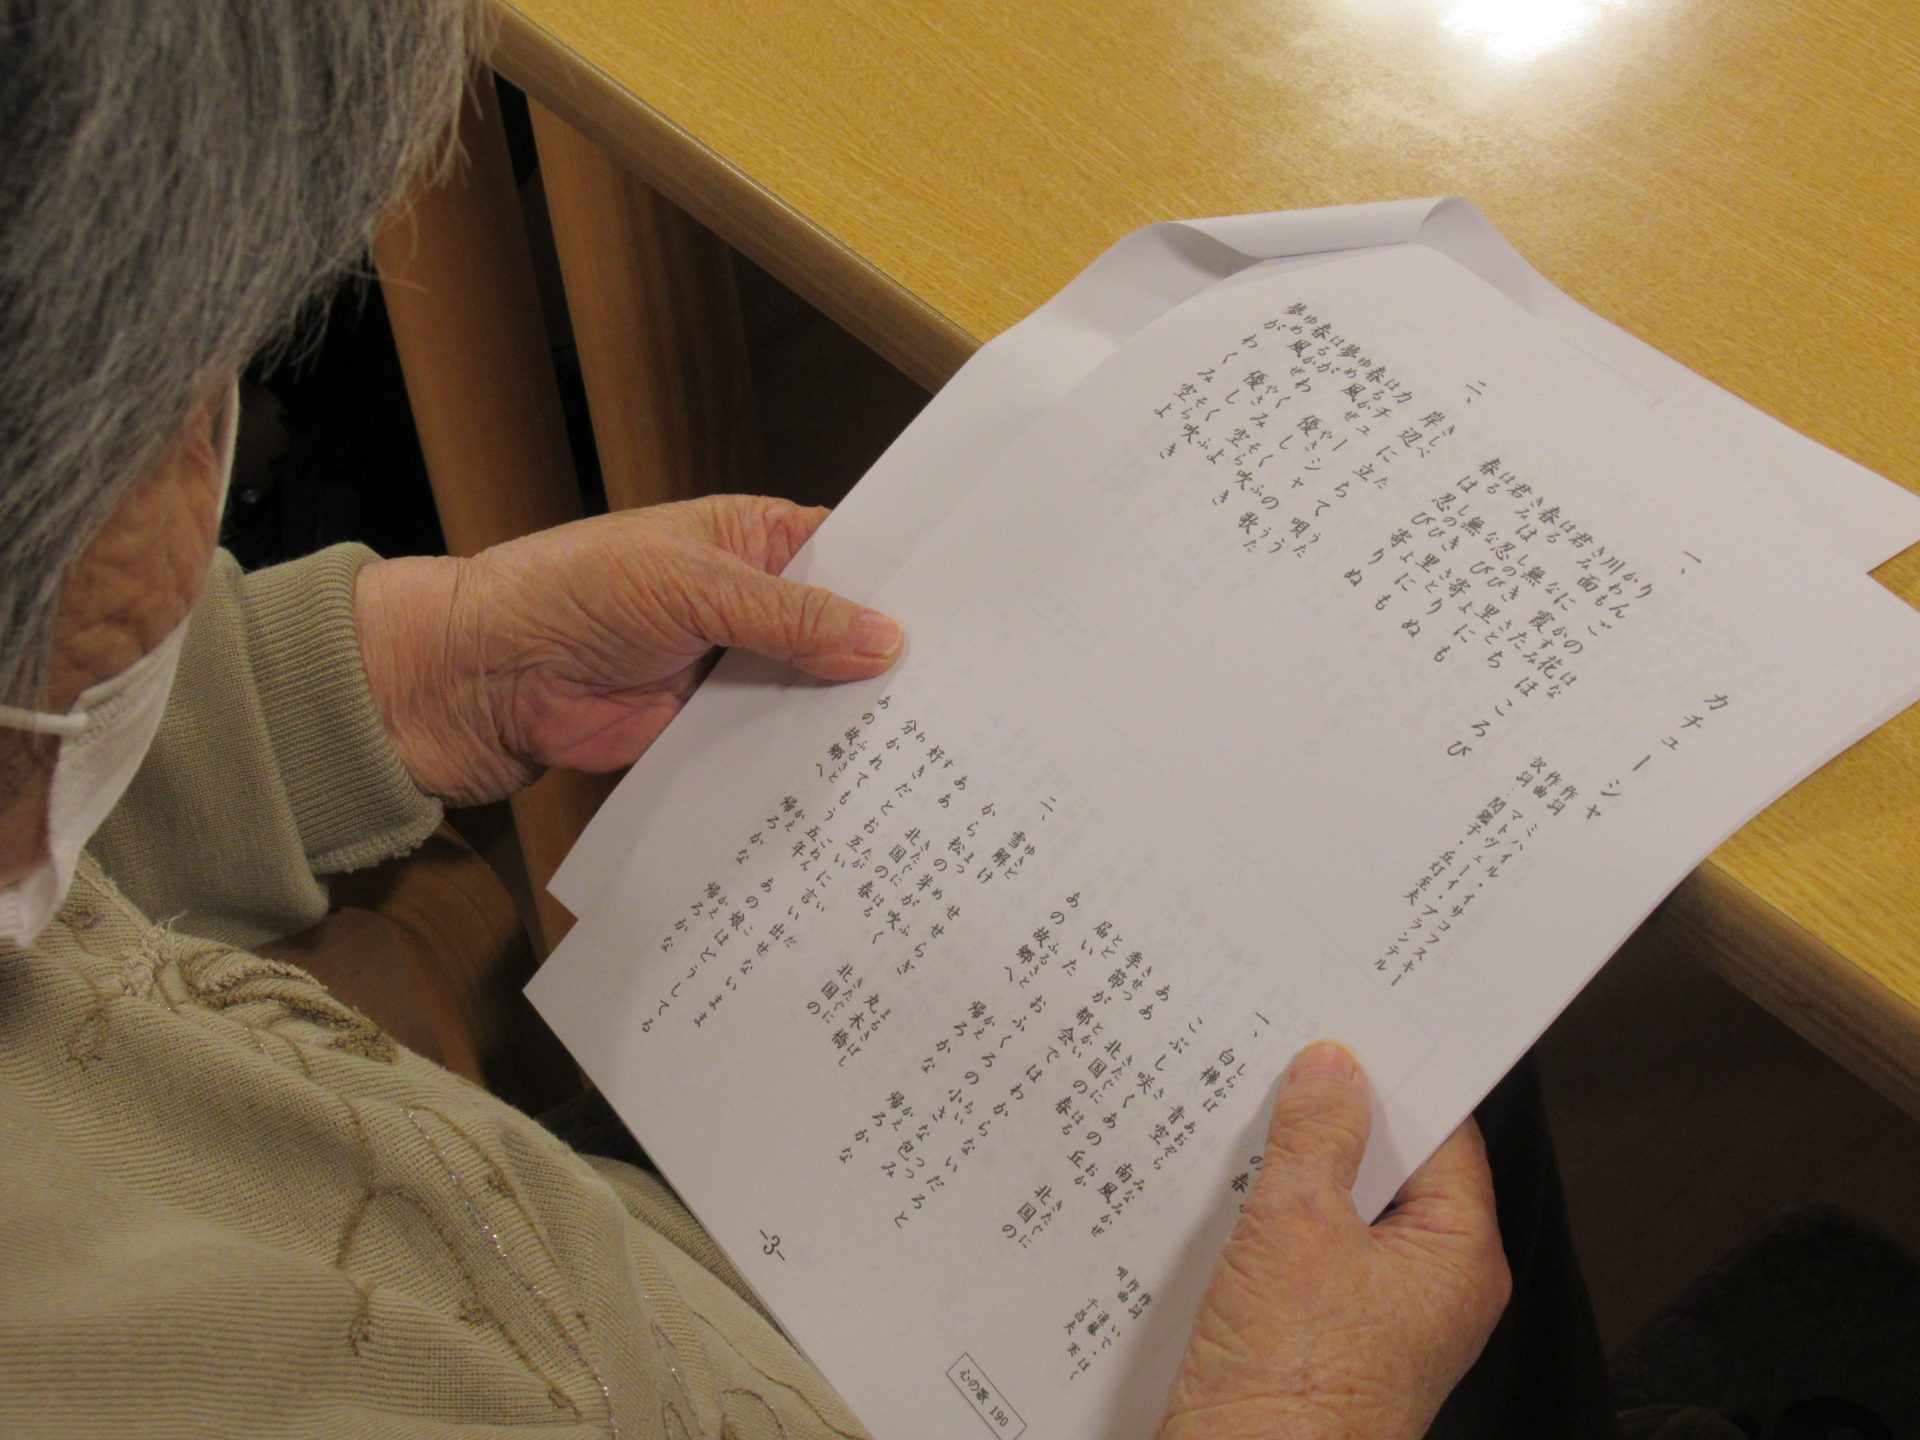 カチューシャ
作詞 ミハイル・イサコフスキー
作曲 マトヴェーイ・ブランテル
訳詞:関鑑子・丘灯至夫
一、
りんごの花ほころび
川面に霞たち
君無き里にも
春は忍び寄りぬ
君無き里にも
春は忍び寄りぬ
二、
岸辺に立ちて唄う
カチューシャの歌
春風優しく吹き
夢がわくみ空よ
春風優しく吹き
夢がわくみ空よ
の春
作詞 いで・はく
作曲 遠藤 実
唄 千昌夫
一、
白樺 青空 南風
こぶし咲くあの丘 北国の
ああ 北国の春
季節が都会ではわからないだろと
届いたおふくろの小さな包み
あの故郷へ 帰ろかな 帰ろかな
二、
雪解け せせらぎ 丸木橋
から松の芽が吹く 北国の
ああ 北国の春
好きだとお互いに言い出せないまま
分かれてもう五年 あの娘はどうしてる
あの故郷へ 帰ろかな 帰ろかな
-3-
心の歌 190